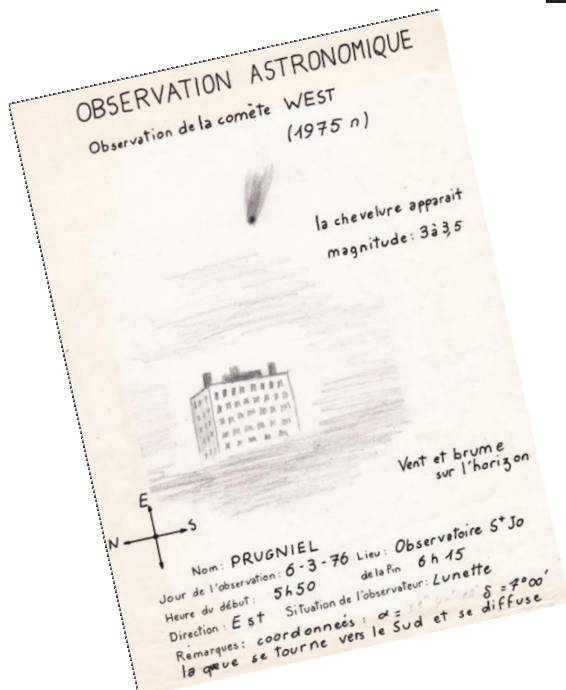 OBSERVATION ASTRONOMIQUE
Observation de la comète WEST
(1975 n)
la chevelure apparait
magnitude: 3 à 3,5
Vent et brume
sur l'horizon
E
N S
Nom: PRUGNIEL
Jour de l'observation: 6-3-76 Lieu: Observatoire St Jo
Heure du début: 5h50 de la fin 6h15
Direction: Est Situation de l'observateur: Lunette
Remarques: coordonnées: α = δ = 7°00'
la queue se tourne vers le Sud et se diffuse